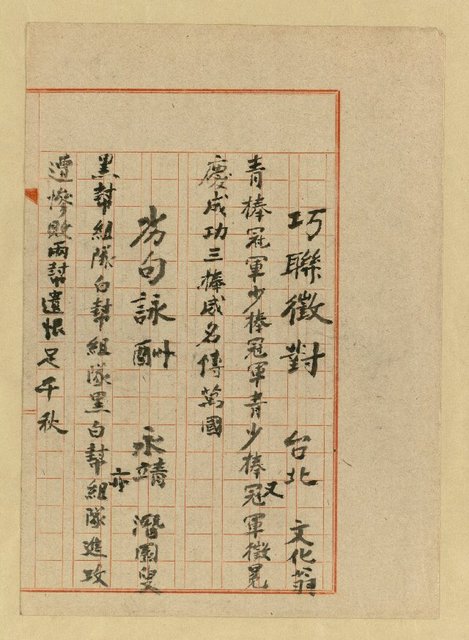 巧聯徵對 台北 文化翁
青棒冠軍少棒冠軍青少棒冠又軍衛冕
慶成功三棒威名傳萬國
劣句詠酬 永靖 潛園叟
黑幫組隊白幫組隊黑白幫組亦隊進攻
遭慘敗兩幫遺恨足千秋